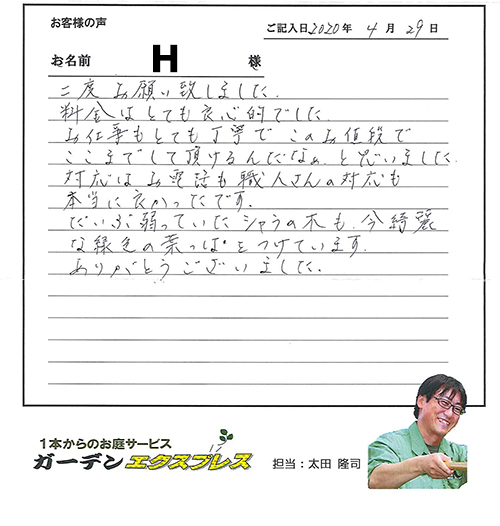 お客様の声
ご記入日2020年 4月29日
お名前 H 様
二度お願い致しました。
料金はとても良心的でした。
お仕事もとても丁寧で このお値税で
ここまでして頂けるんだなぁ、と思いました。
対応はお電話も職人さんの対応も
本当に良かったです。
だいぶ弱っていたシャラの木も、今綺麗
な緑色の葉っぱをつけています。
ありがとうございました。
1本からのお庭サービス
ガーデンエクスプレス
担当:太田 隆司